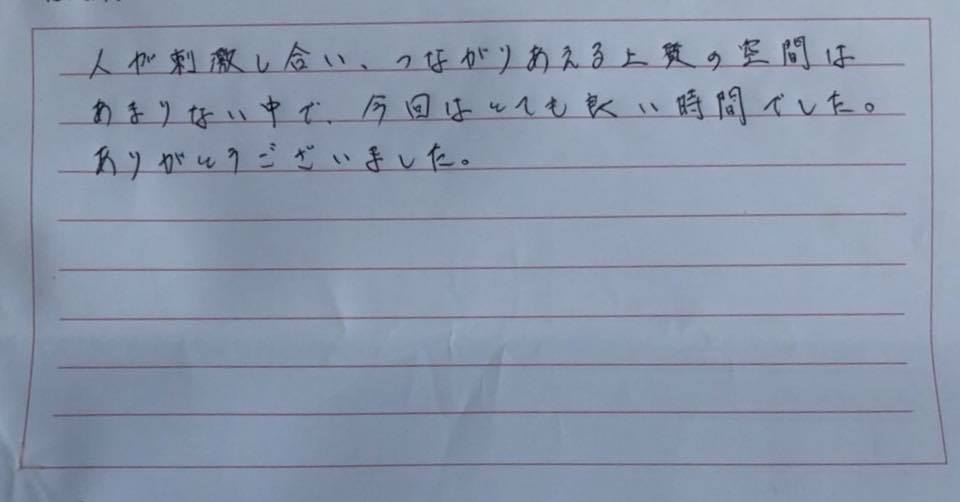 人が刺激し合い、つながりあえる上質の空間は
あまりない中で、今回はとても良い時間でした。
ありがとうございました。